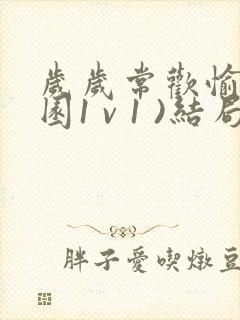 歲歲常歡愉
園1v1)結局
胖子愛喫燉豆